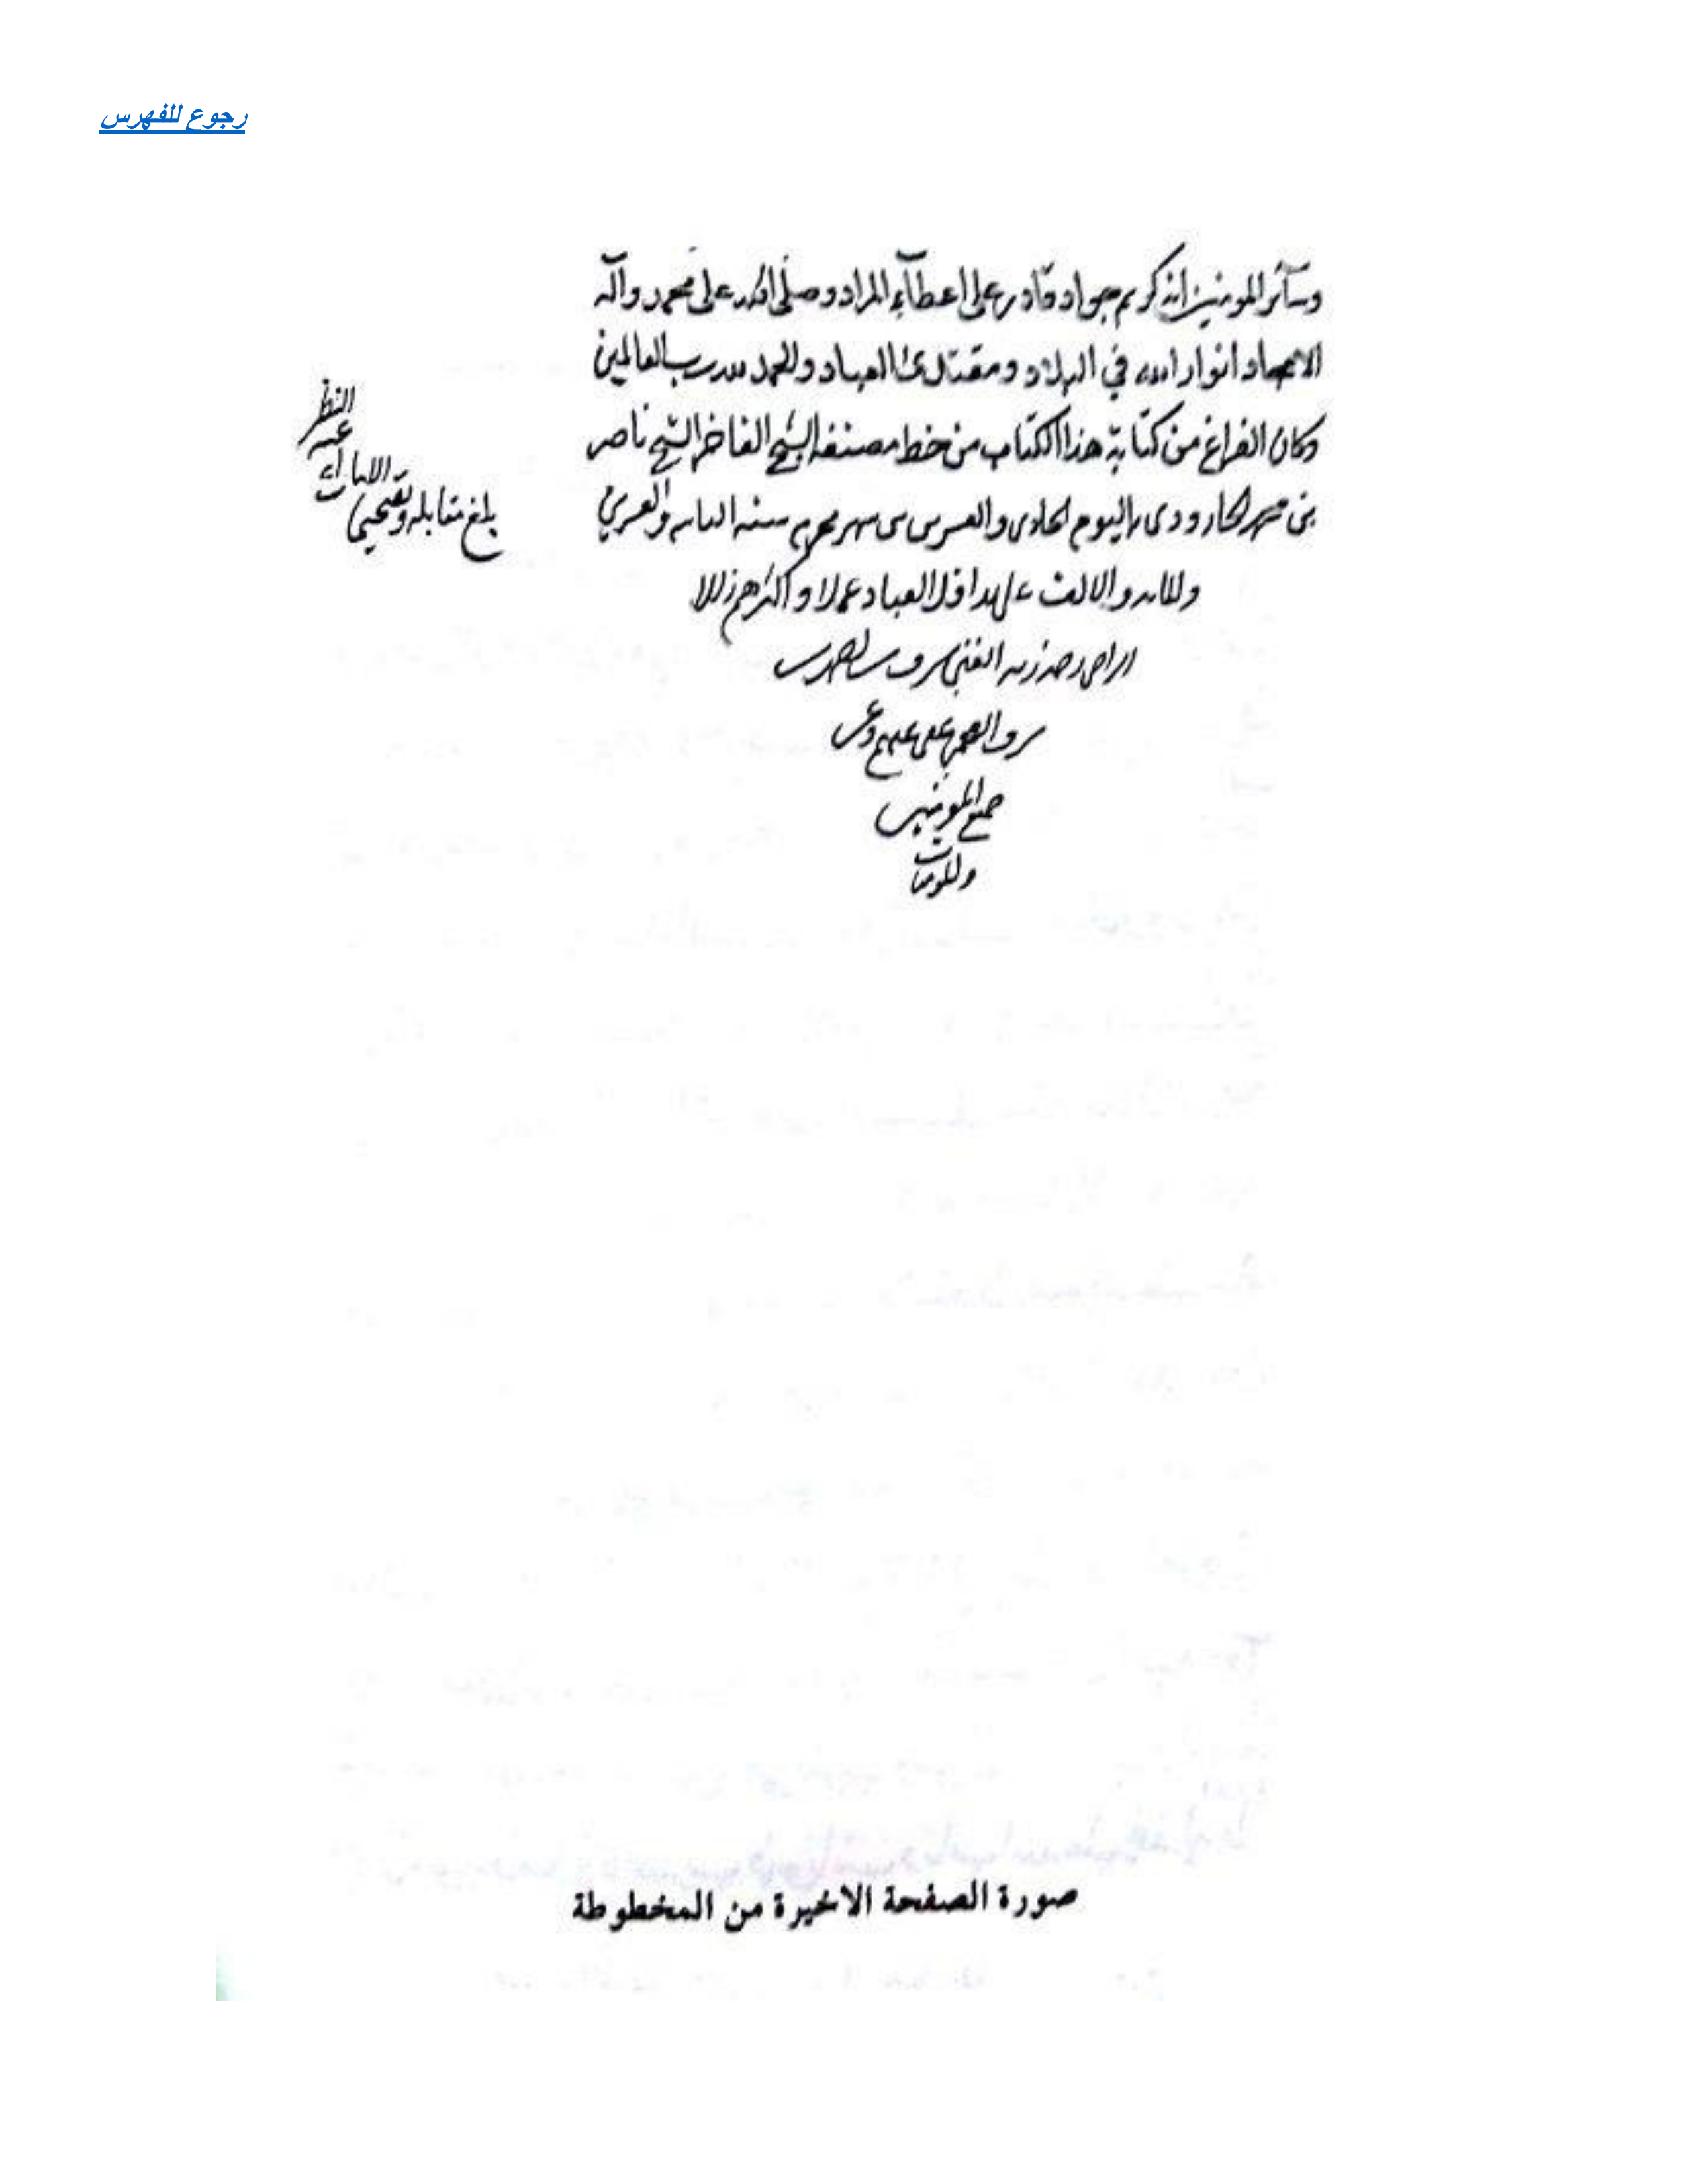 رجوع للفهرس
وسآئر المومنين انه كريم جواد قادر على اعطآء المراد وصلى الله على محمد وآله
الامجاد انوار الله في البلاد ومقتدى العباد والحمد لله رب العالمين
وكان الفراغ من كتابة هذا الكتاب من خط مصنفه الشيخ الفاخر الشيخ ناصر
بن محمد الجارودى اليوم الحادى والعسرين من سهر محرم سنه الثامنه والعسرين
والمايه والالف على يد اقل العباد عملا واكثرهم زللا
الراجي رحمة ربه الغني
عفى عنهم وعن
جميع المومنين
والمومنات
بلغ مقابلة وتصحيحا
الا ما زاغ
عنه
النظر
صورة الصفحة الاخيرة من المخطوطة